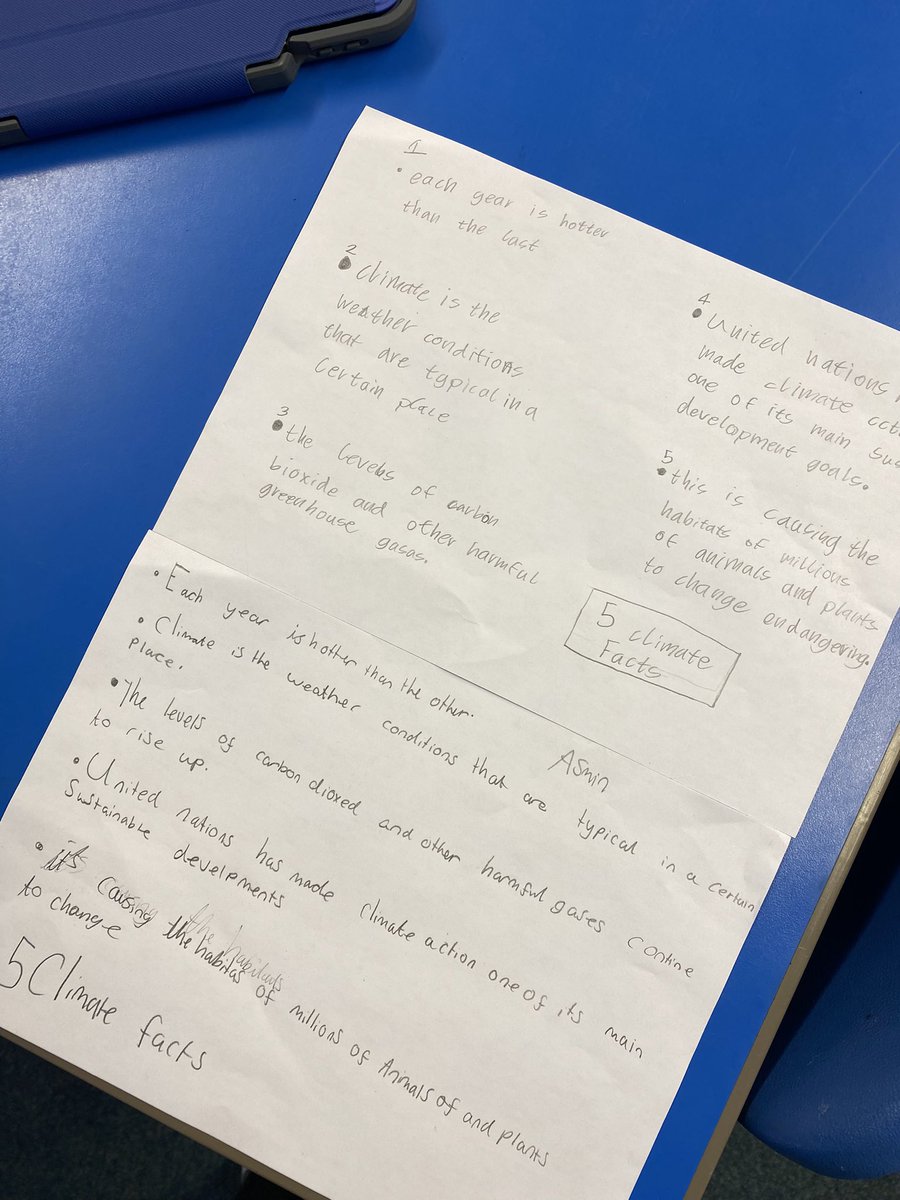 1
• each year is hotter
than the last
2
• Climate is the
weather conditions
that are typical in a
certain place
3
• the levels of carbon
bioxide and other harmful
greenhouse gases.
4
• United nations
made climate
one of its main
development goals.
5
• this is causing the
habitats of millions
of animals and plants
to change endangering.
5 climate
Facts
• Each year is hotter than the other.
• Climate is the weather conditions that are typical in a certain
place.
• The levels of carbon dioxed and other harmful gases contine
to rise up.
• United nations has made climate action one of its main
Sustainable develepments
• its causing the habitas of millions of Anmals of and plants
to change
5 Climate facts